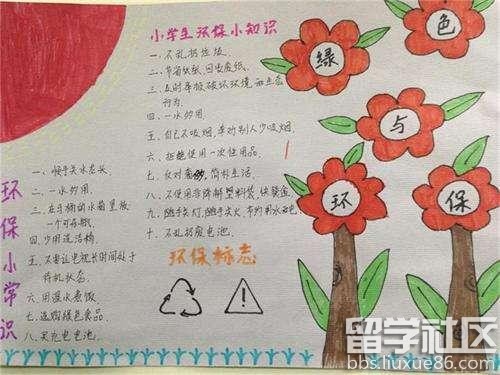 小学生环保小知识
一、不乱扔垃圾。
二、节省纸张、回收废纸。
三、及时举报破坏环境和生态
行为。
四、一水多用。
五、自己不吸烟，奉劝别人少吸烟。
六、拒绝使用一次性用品。
七、反对奢侈，简朴生活。
八、不使用非降解塑料袋、快餐盒。
九、随手关灯，随手关火，节约用水用电
十、不乱扔废电池。
环保标志
环保小常识
一、拧紧水龙头。
二、一水多用。
三、在马桶的水箱里放
一个可乐瓶。
四、少用洗洁精
五、不要让电视长时间处于
待机状态。
六、用温水煮饭。
七、选购绿色食品。
八、买充电电池。
绿色与环保
留学社区
bbs.liuxue86.com